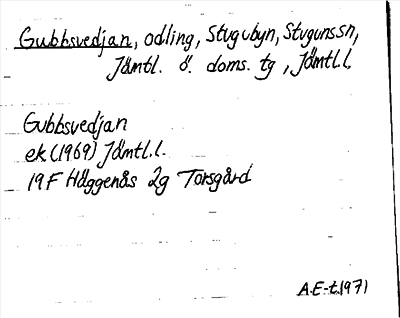 Gubbsvedjan, odling, Stugubyn, Stugunssn,
Jämtl. ö. doms. tg, Jämtl.l.
Gubbsvedjan
ek (1969) Jämtl.l.
19F Häggenås 2g Torsgård
A.E-t.1971